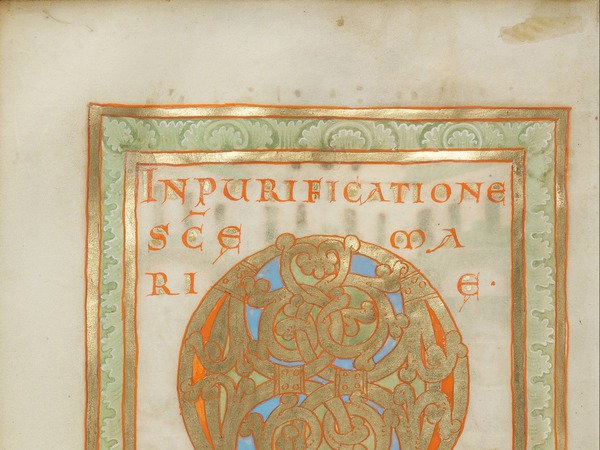 INPURIFICATIONE
SC̄E MA
RI E·